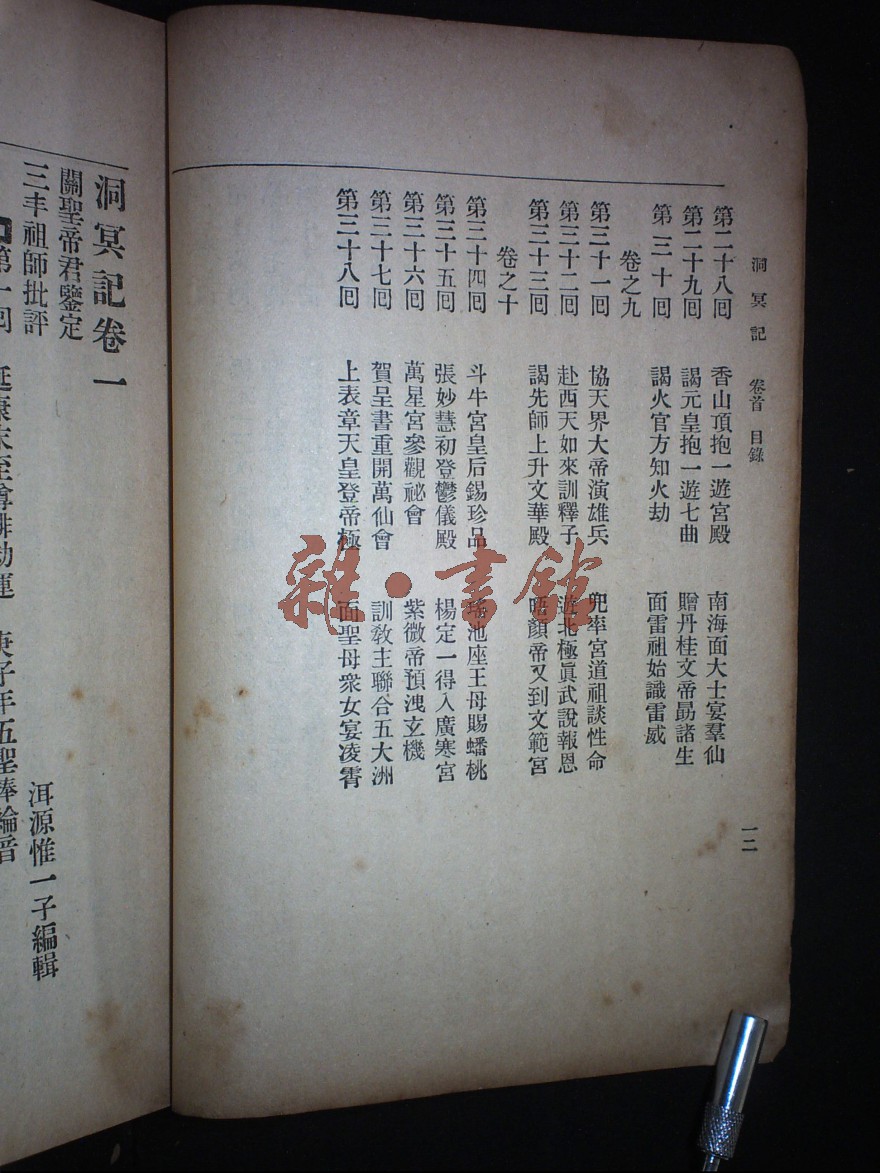 洞冥記　卷首　目錄
一二
第二十八回　香山頂抱一遊宮殿　南海面大士宴羣仙
第二十九回　謁元皇抱一遊七曲　贈丹桂文帝勗諸生
第三十回　謁火官方知火劫　面雷祖始識雷威
卷之九
第三十一回　協天界大帝演雄兵　兜率宮道祖談性命
第三十二回　赴西天如來訓釋子　遊北極眞武說報恩
第三十三回　謁先師上升文華殿　晤顏帝又到文範宮
卷之十
第三十四回　斗牛宮皇后錫珍品　瑤池座王母賜蟠桃
第三十五回　張妙慧初登鬱儀殿　楊定一得入廣寒宮
第三十六回　萬星宮參觀祕會　紫微帝預洩玄機
第三十七回　賀呈書重開萬仙會　訓敎主聯合五大洲
第三十八回　上表章天皇登帝極　面聖母衆女宴凌霄
雜·書館
洞冥記卷一
關聖帝君鑒定
三丰祖師批評　洱源惟一子編輯
第一回　延康末至尊排劫運　庚子年五聖捧綸音